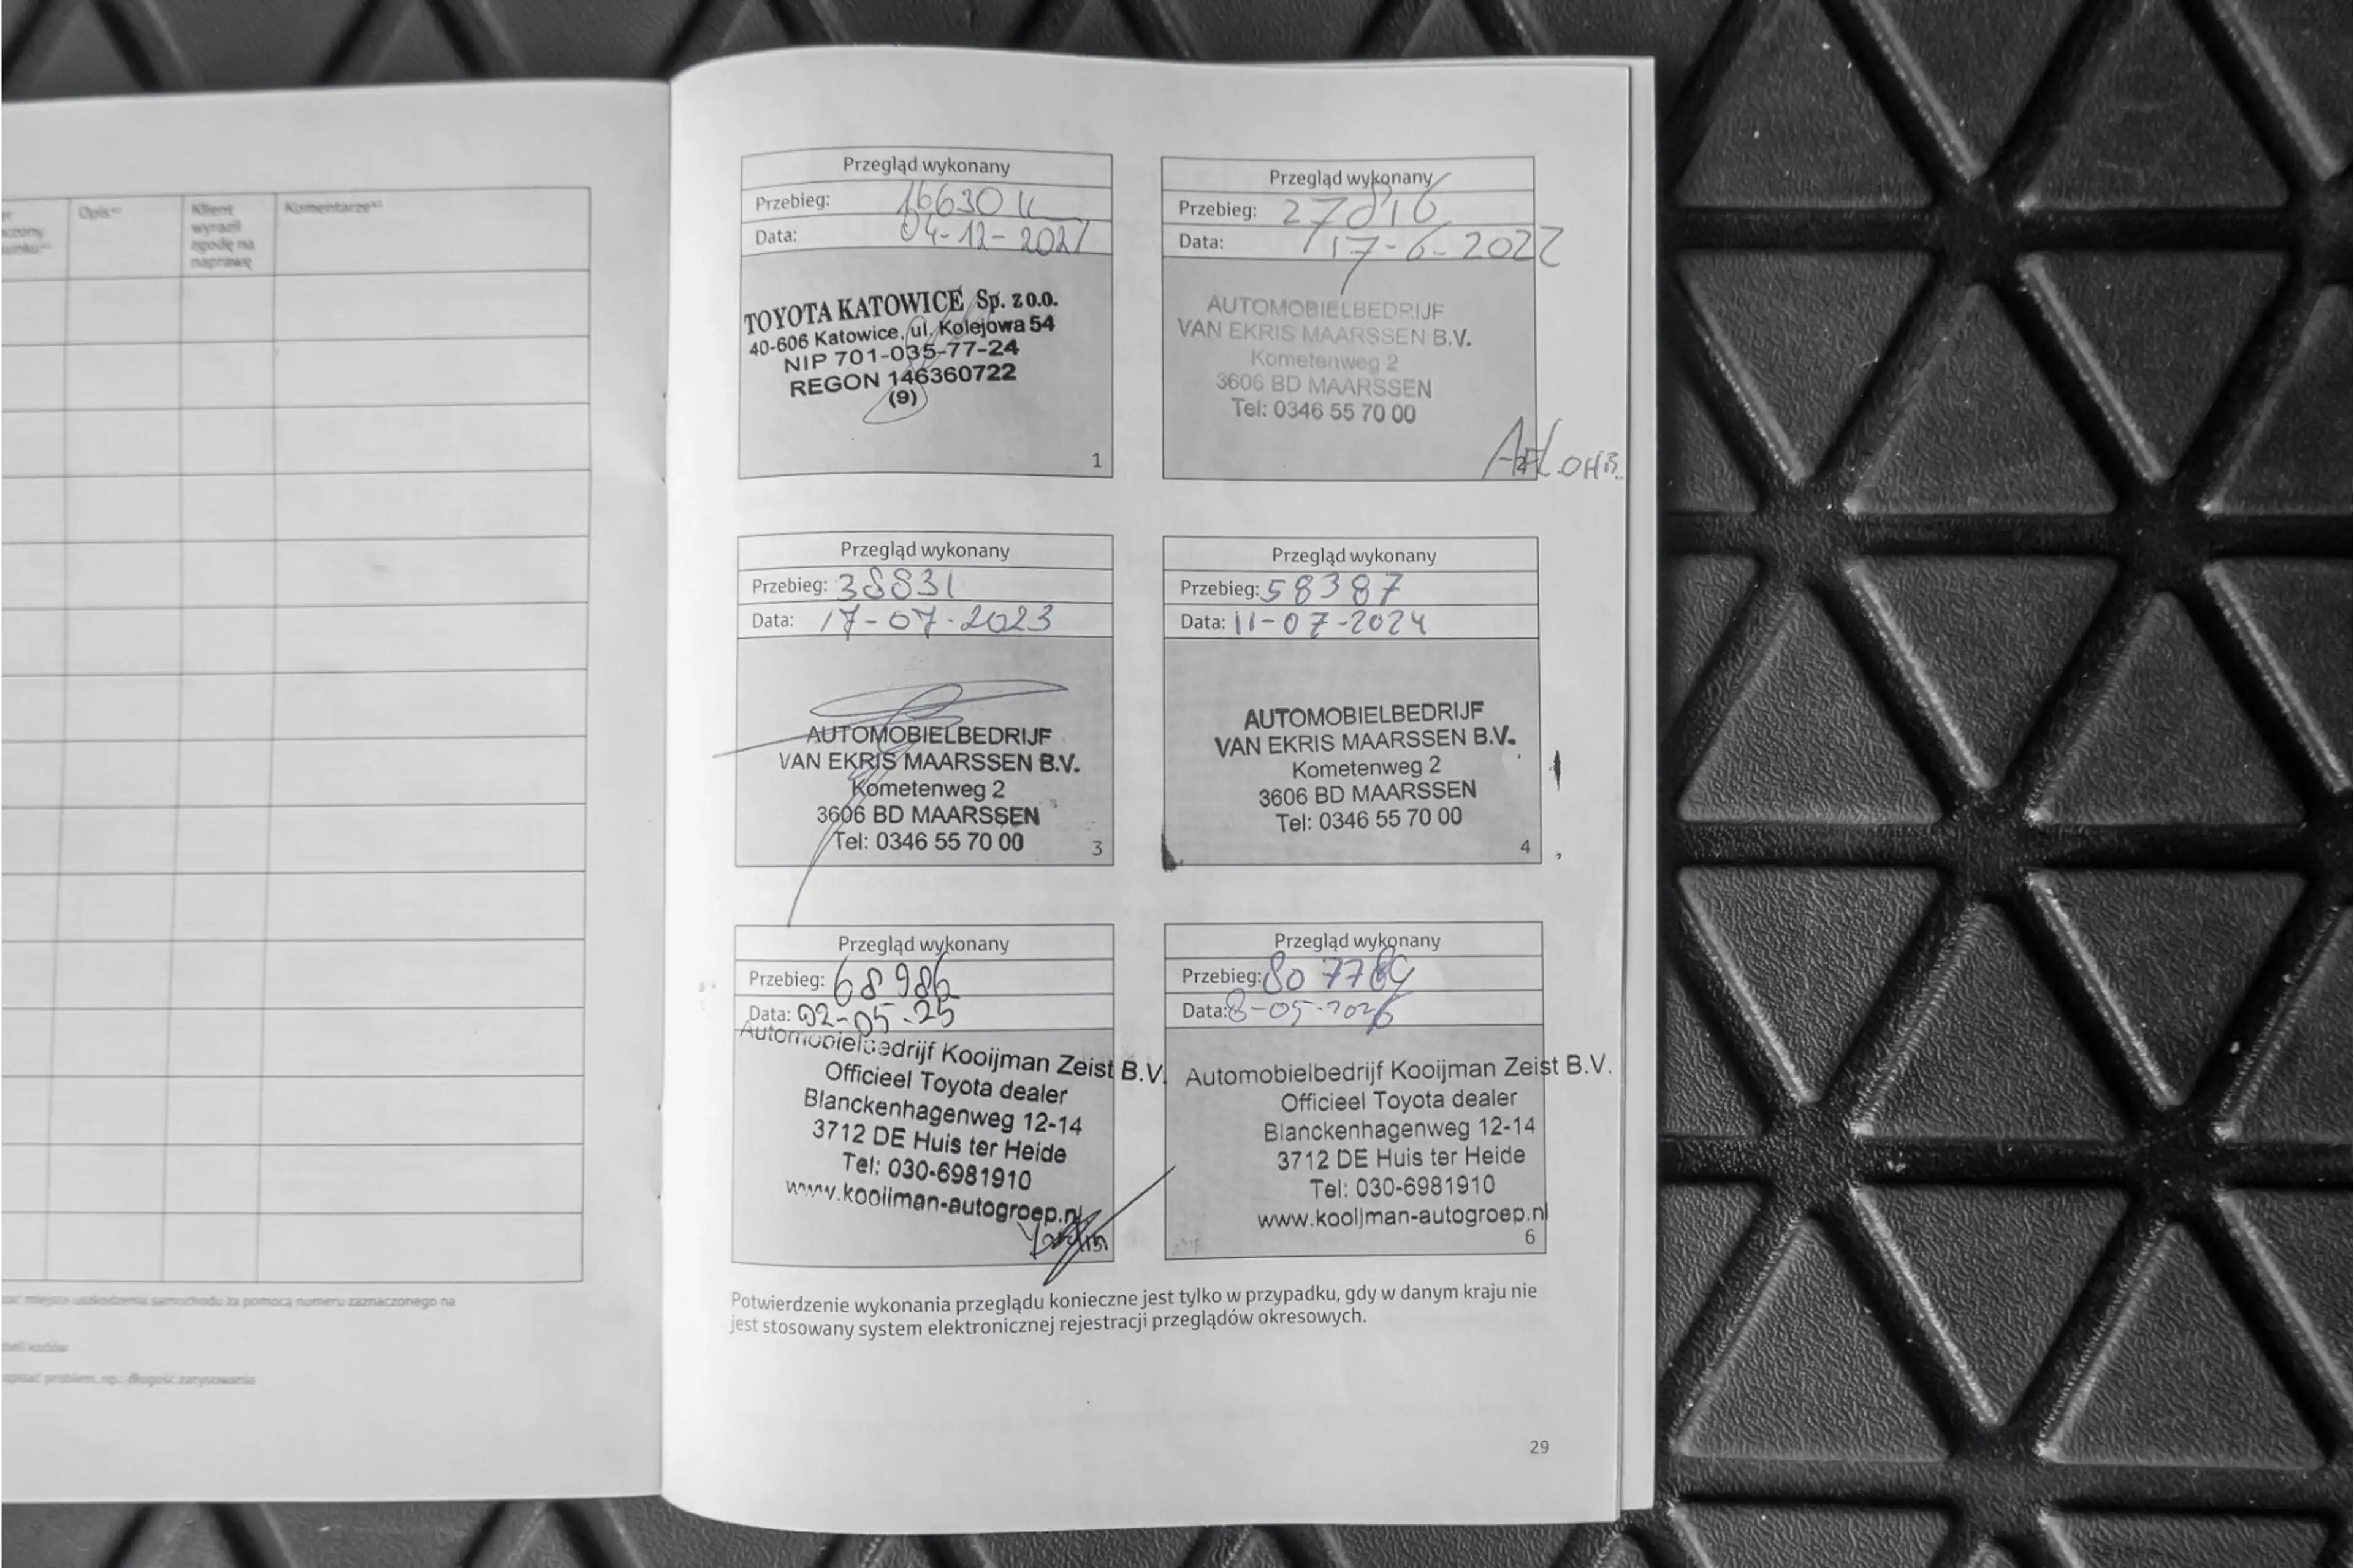 Opis
Klient
wyraził
zgodę na
naprawę
Komentarze
miejsce uszkodzenia samochodu za pomocą numeru zaznaczonego na
opisać problem, np.: długość zarysowania
Przegląd wykonany
Przebieg: 16630
Data: 04-12-2021
TOYOTA KATOWICE Sp. z o.o.
40-606 Katowice, ul. Kolejowa 54
NIP 701-035-77-24
REGON 146360722
(9)
1
Przegląd wykonany
Przebieg: 27816
Data: 17-6-2022
AUTOMOBIELBEDRIJF
VAN EKRIS MAARSSEN B.V.
Kometenweg 2
3606 BD MAARSSEN
Tel: 0346 55 70 00
Przegląd wykonany
Przebieg: 38831
Data: 17-07-2023
AUTOMOBIELBEDRIJF
VAN EKRIS MAARSSEN B.V.
Kometenweg 2
3606 BD MAARSSEN
Tel: 0346 55 70 00
3
Przegląd wykonany
Przebieg: 58387
Data: 11-07-2024
AUTOMOBIELBEDRIJF
VAN EKRIS MAARSSEN B.V.
Kometenweg 2
3606 BD MAARSSEN
Tel: 0346 55 70 00
4
Przegląd wykonany
Przebieg: 68986
Data: 02-05-25
Automobielbedrijf Kooijman Zeist B.V.
Officieel Toyota dealer
Blanckenhagenweg 12-14
3712 DE Huis ter Heide
Tel: 030-6981910
www.kooijman-autogroep.nl
Przegląd wykonany
Przebieg:
Data: 8-05-2026
Automobielbedrijf Kooijman Zeist B.V.
Officieel Toyota dealer
Blanckenhagenweg 12-14
3712 DE Huis ter Heide
Tel: 030-6981910
www.kooijman-autogroep.nl
6
Potwierdzenie wykonania przeglądu konieczne jest tylko w przypadku, gdy w danym kraju nie
jest stosowany system elektronicznej rejestracji przeglądów okresowych.
29